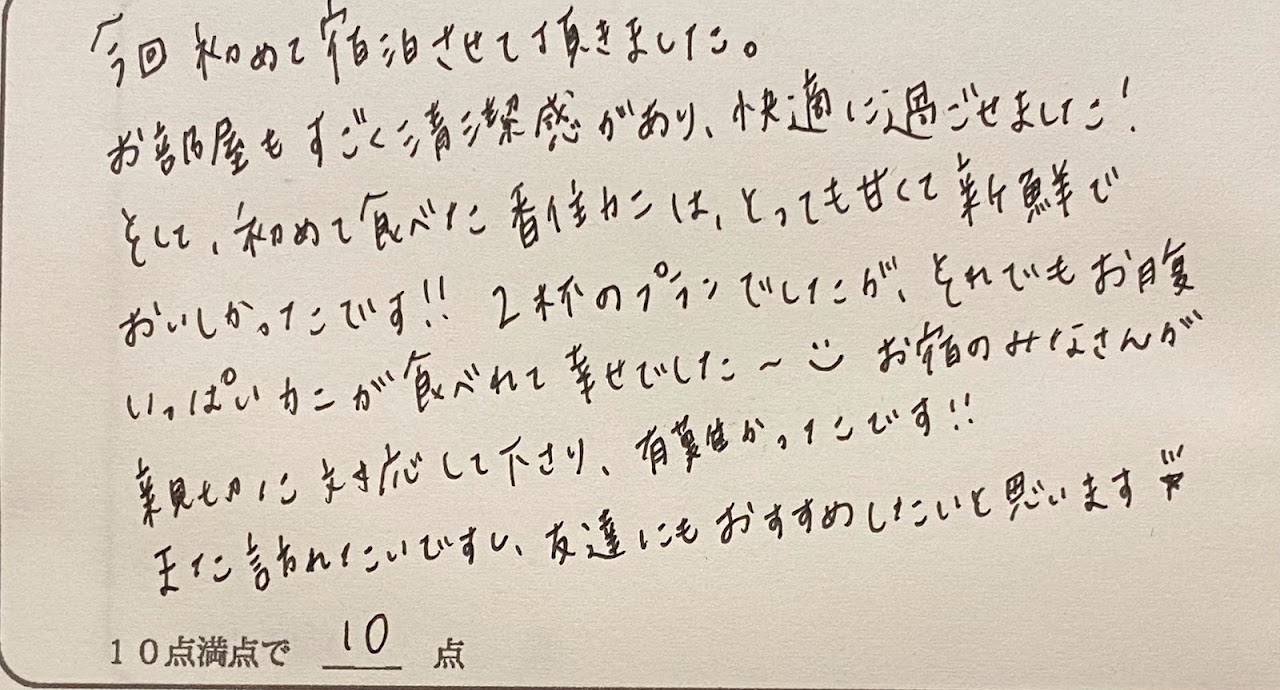 今回初めて宿泊させて頂きました。
お部屋もすごく清潔感があり、快適に過ごせました!
そして、初めて食べた香住カニは、とっても甘くて新鮮で
おいしかったです!! 2杯のプランでしたが、それでもお腹
いっぱいカニが食べれて幸せでした〜 お宿のみなさんが
親切に対応して下さり、有難かったです!!
また訪れたいですし、友達にもおすすめしたいと思います
10点満点で 10 点